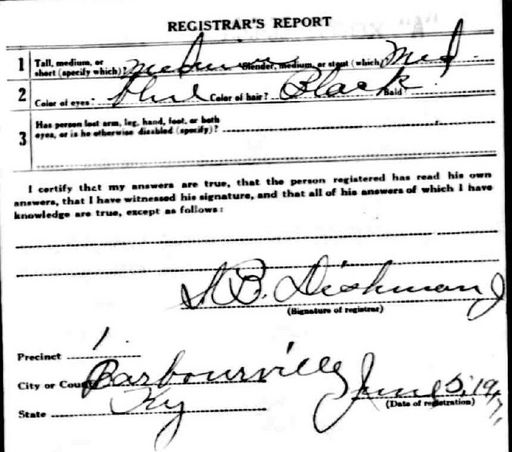 REGISTRAR'S REPORT
1 Tall, medium, or short (specify which)? Medium Slender, medium, or stout (which)? Med
2 Color of eyes? Blue Color of hair? Black Bald?
3 Has person lost arm, leg, hand, foot, or both eyes, or is he otherwise disabled (specify)?
I certify that my answers are true, that the person registered has read his own
answers, that I have witnessed his signature, and that all of his answers of which I have
knowledge are true, except as follows:
B. Dishman
(Signature of registrar)
Precinct 1
City or County Barbourville
State Ky
June 5, 1917
(Date of registration)